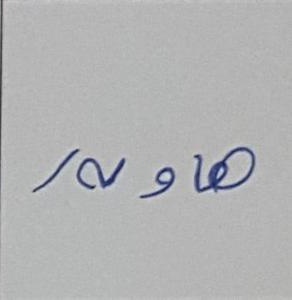 هاوبەر